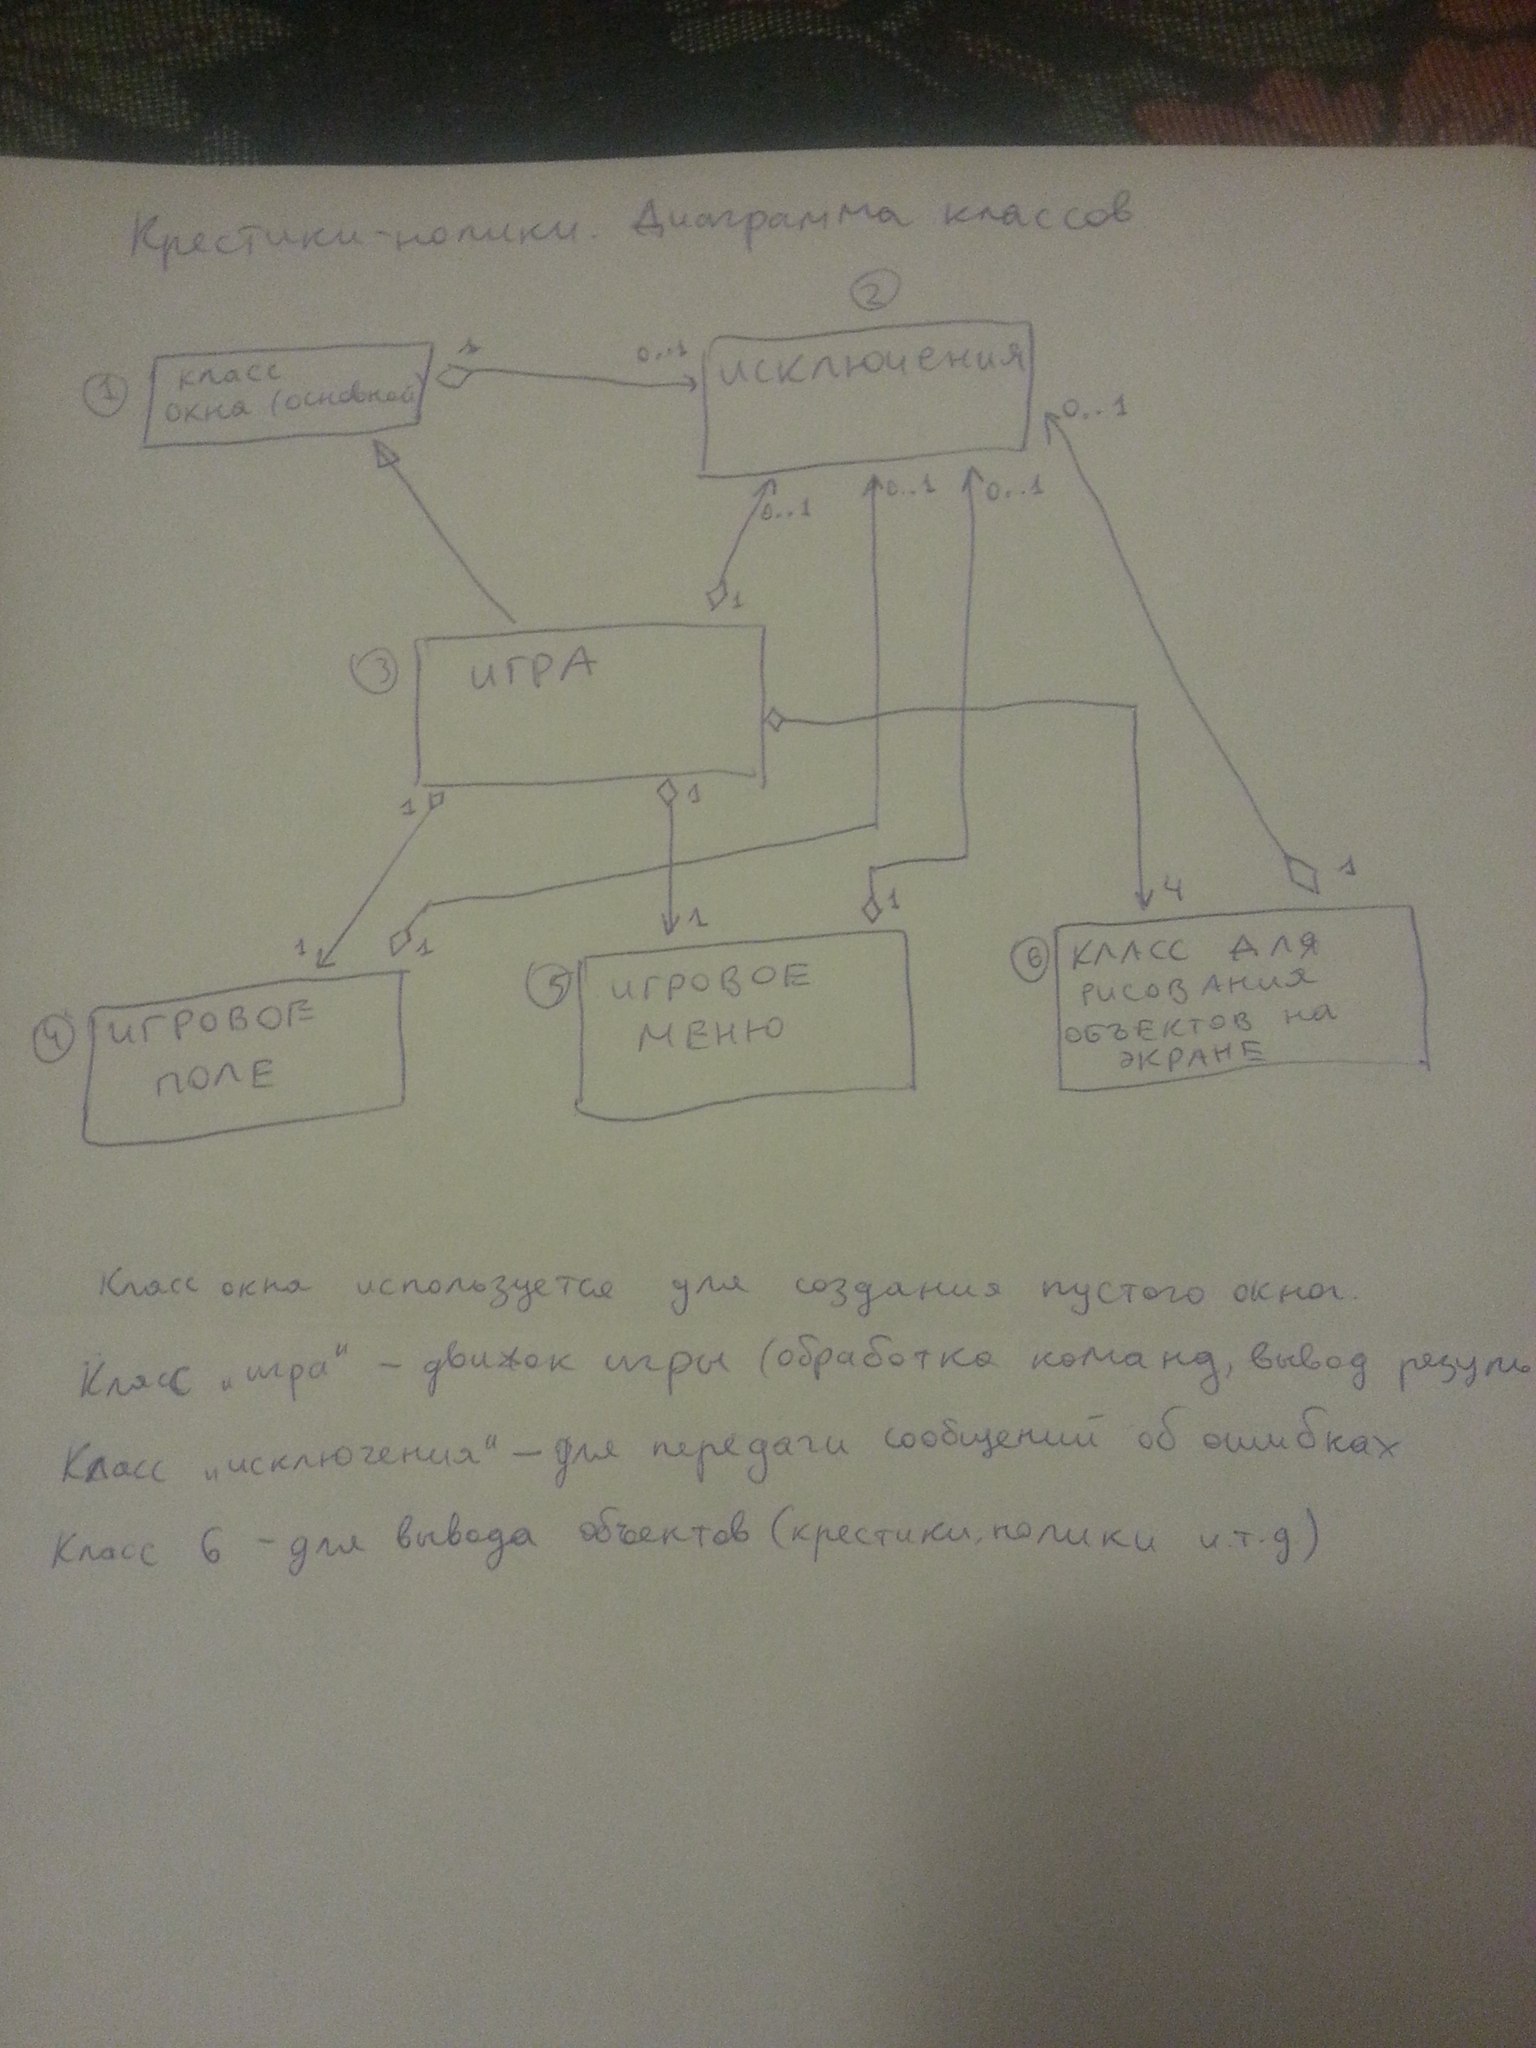 Крестики-нолики. Диаграмма классов
2
1
класс
окна (основной)
1
0..1
исключения
0..1
0..1
0..1
0..1
1
3
ИГРА
1
1
4
1
1
1
1
1
4
ИГРОВОЕ
ПОЛЕ
5
ИГРОВОЕ
МЕНЮ
6
КЛАСС ДЛЯ
РИСОВАНИЯ
ОБЪЕКТОВ на
ЭКРАНЕ
Класс окна используется для создания пустого окна.
Класс „игра" – движок игры (обработка команд, вывод резуль
Класс „исключения" – для передачи сообщений об ошибках
Класс 6 – для вывода объектов (крестики, нолики и.т.д)